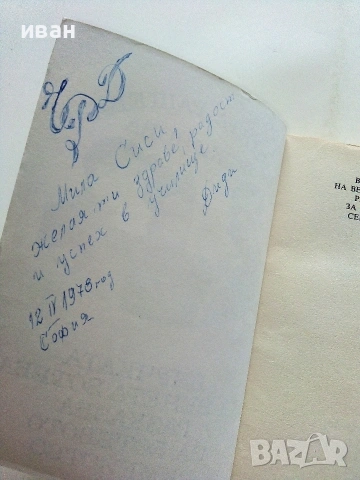 иван
ЧРД
Мила Сиси
желая ти здраве, радост
и успех в училище.
Диди
12 IV 1979 год
София
В
НА ВЕ
Р
ЗА
СЕЛ
BAZAR.BG